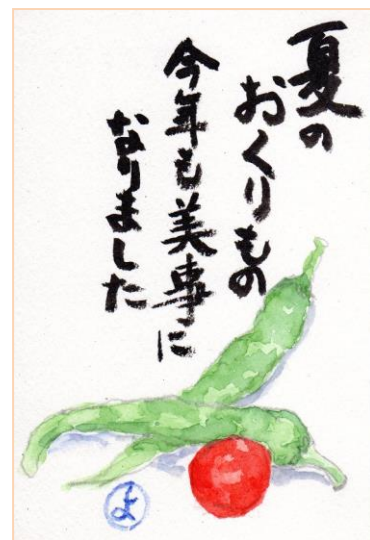 夏の
おくりもの
今年も美事に
なりました
よ